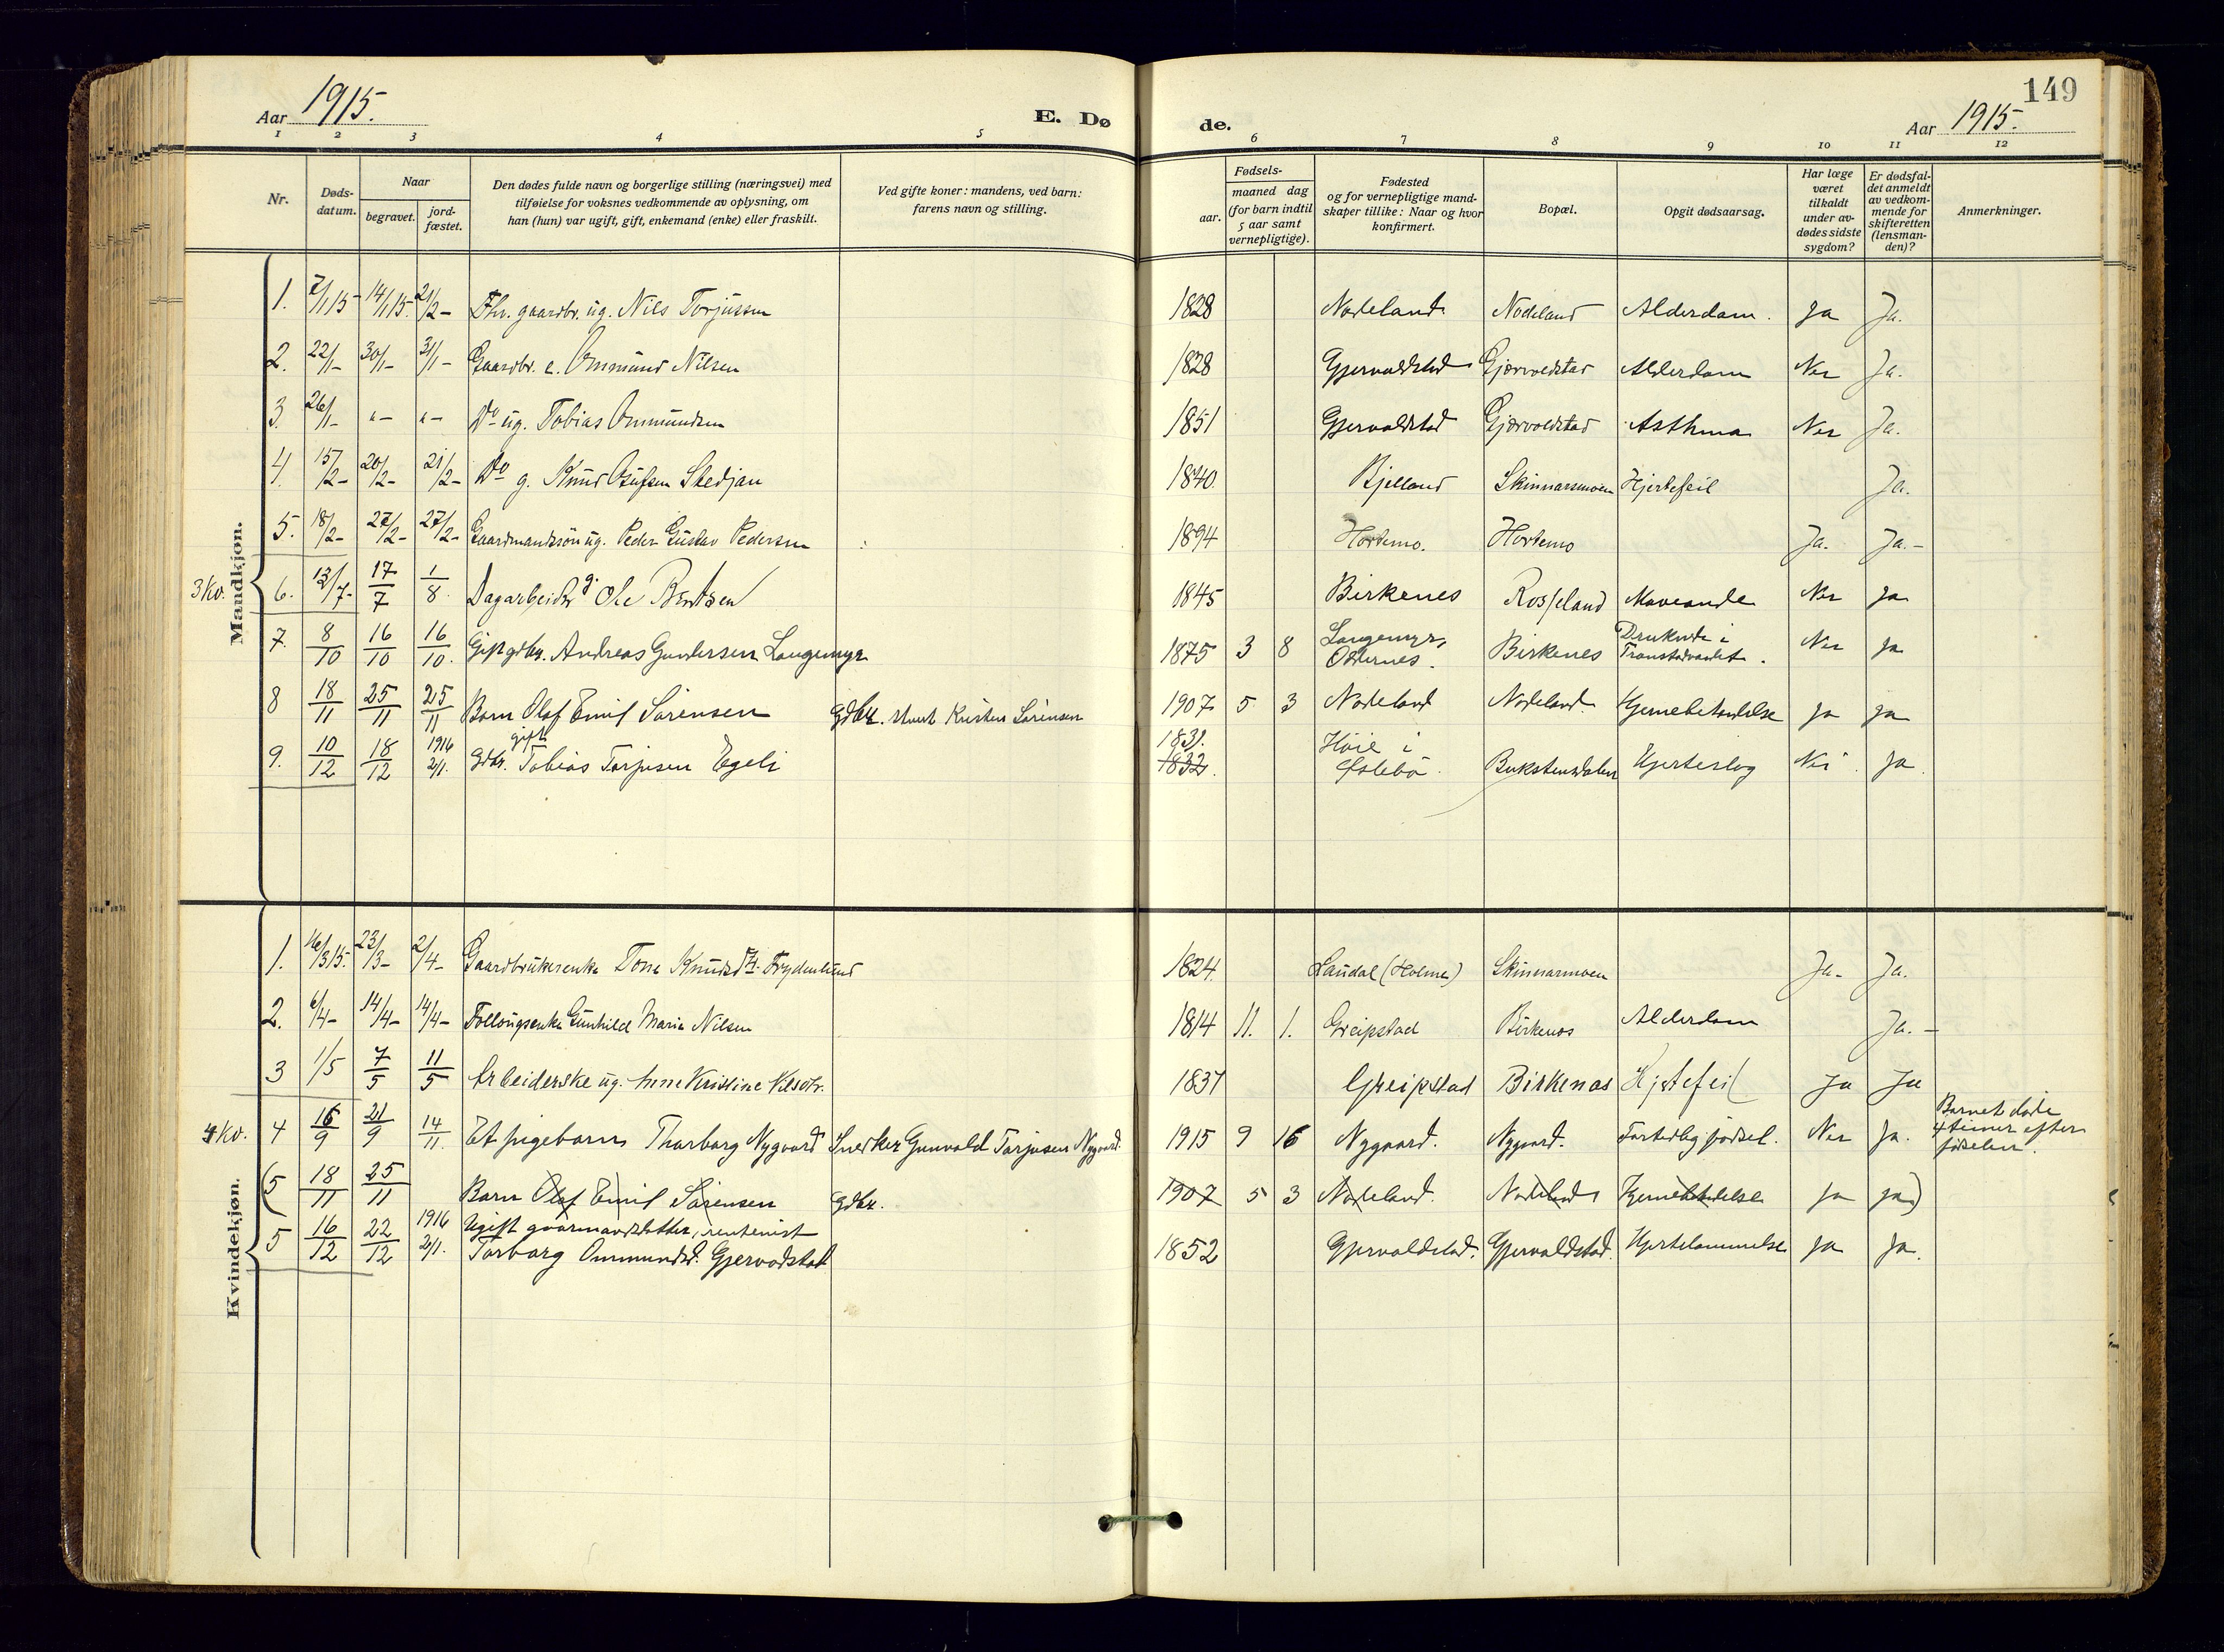 149
Aar 1915.
E. Dø de.
Aar 1915.
1 2 3 4 5 6 7 8 9 10 11 12
Nr.
Døds-
datum.
Naar
begravet.
jord-
fæstet.
Den dødes fulde navn og borgerlige stilling (næringsvei) med
tilføielse for voksnes vedkommende av oplysning, om
han (hun) var ugift, gift, enkemand (enke) eller fraskilt.
Ved gifte koner: mandens, ved barn:
farens navn og stilling.
Fødsels-
aar.
maaned dag
(for barn indtil
5 aar samt
vernepligtige).
Fødested
og for vernepligtige mand-
skaper tillike: Naar og hvor
konfirmert.
Bopæl.
Opgit dødsaarsag.
Har læge
været
tilkaldt
under av-
dødes sidste
sygdom?
Er dødsfal-
det anmeldt
av vedkom-
mende for
skifteretten
(lensman-
den)?
Anmerkninger.
Mandkjøn.
3 Kv.
1. 7/1 15 14/1 15. 21/2 – Fhv. gaardbr. ug. Nils Torjussen 1828 Nodeland Nodeland Alderdom. Ja Ja.
2. 22/1 – 30/1 – 31/1 – Gaardbr. e. Ommund Nilsen 1828 Gjervoldstad Gjervoldstad Alderdom Nei Ja.
3. 26/1 – "– "– Do ug. Tobias Ommundsen 1851 Gjervoldstad Gjervoldstad Asthma Nei Ja.
4. 15/2 – 20/2 – 21/2 – Do g. Knud Osufsen Skedjan 1840. Bjelland Skinnarsmoen Hjertefeil Ja.
5. 18/2 – 27/2 – 27/2 – Gaardmandssøn ug. Peder Gustav Pedersen 1894 Hortemo. Hortemo Ja. Ja. –
6. 13/7 – 17/7 1/8. Dagarbeider g. Ole Berntsen 1845 Birkenes Rosseland Maveonde Nei Ja
7. 8/10 16/10 16/10. Gift gdbr. Andreas Gundersen Langemyr 1875 3 8 Langemyr, Oddernes. Birkenes Druknede i Nei Ja
8 18/11 25/11 25/11 Barn Olaf Emil Sörensen Gdbr. Kristen Sörensen 1907 5 3 Nodeland Nodeland Hjernebetendelse Ja Ja
9. 10/12 18/12 1916 2/1. Gdbr. gift Tobias Torjusen Egeli 1831. 1832. Høie i Øslebö. Bukstensdalen Hjerteslag Nei Ja.
Kvindekjøn.
4 Kv.
1. 16/3 15. 23/3 – 2/4 – Gaardbrukerenke Tone Knudsdt. Frydenlund 1824. Laudal (Holme) Skinnarmoen Ja – Ja.
2. 6/4 – 14/4 – 14/4 – Follougsenke Gunhild Maria Nilsen 1814 11. 1. Greipstad Birkenes Alderdom Ja. –
3 1/5 7/5 11/5 Arbeiderske ug. Anne Kristine Nilsdtr. 1837 Greipstad Birkenas Hjertefeil Ja Ja
4 16/9 21/9 14/11. Et pigebarn Tharborg Nygaard Snedker Gunvald Torjusen Nygaard. 1915 9 16 Nygaard. Nygaard. Fortidlig födsel. Nei Ja. Barnet döde
4 timer efter
födselen.
(5 18/11 25/11 Barn Olaf Emil Sörensen Gdbr. 1907 5 3 Nodeland. Nodeland Hjernebetendelse Ja Ja)
5 16/12 22/12 1916 2/1. Ugift gaarmandsdatter, rentenist
Torborg Ommundsd. Gjervodstad 1852 Gjervoldstad. Gjervoldstad. Hjertelammelse Ja Ja.